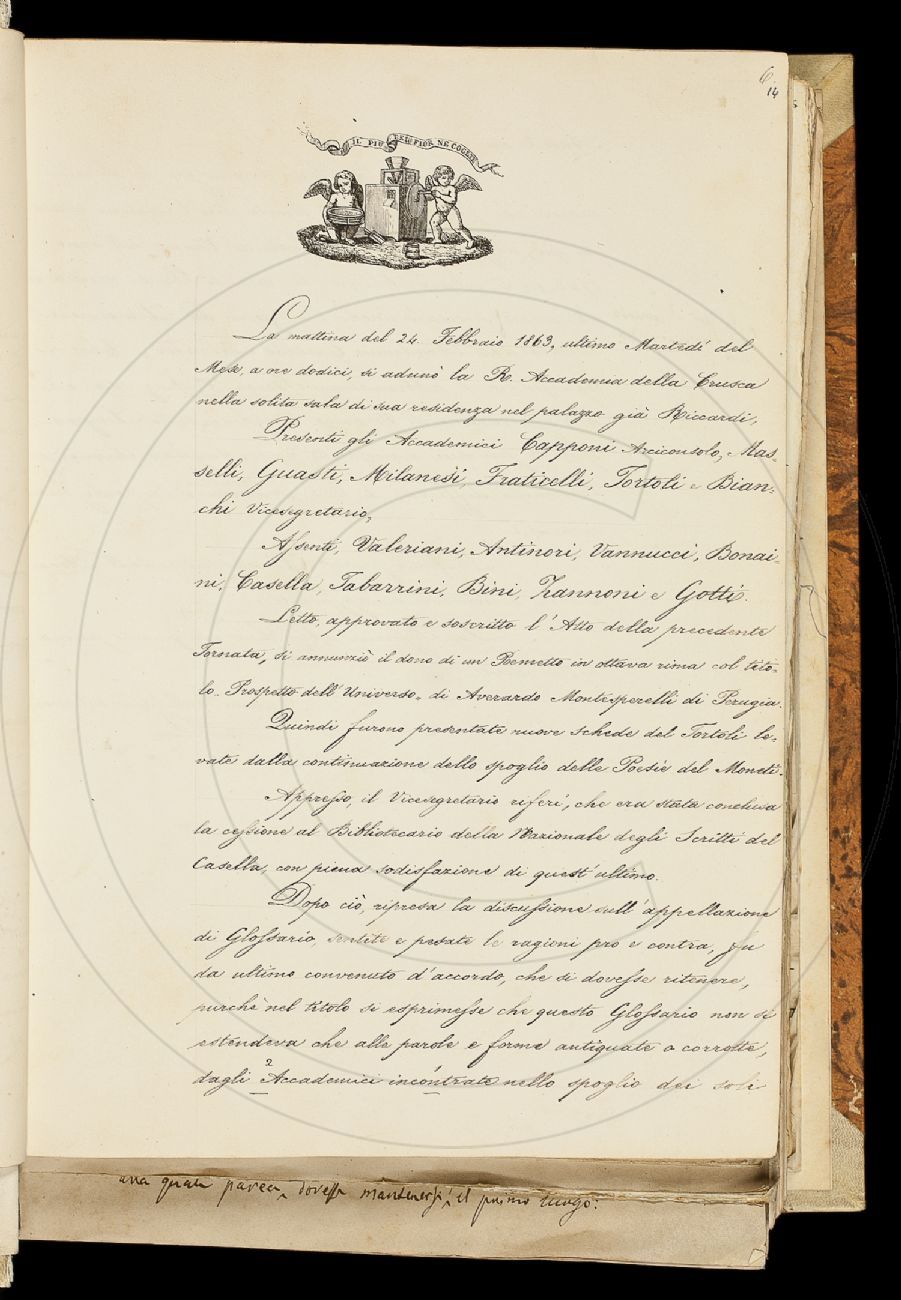 6.
14
IL PIÙ BEL FIOR NE COGLIE
La mattina del 24. Febbraio 1863, ultimo Martedì del
Mese, a ore dodici, si adunò la R. Accademia della Crusca
nella solita sala di sua residenza nel palazzo già Riccardi,
Presenti gli Accademici Capponi Arciconsolo, Mas=
selli, Guasti, Milanesi, Fraticelli, Tortoli e Bian=
chi Vicesegretario,
Assenti, Valeriani, Antinori, Vannucci, Bonai=
ni, Casella, Tabarrini, Bini, Zannoni e Gotti.
Letto, approvato e soscritto l'Atto della precedente
Tornata, si annunziò il dono di un Poemetto in ottava rima col tito=
lo. Prospetto dell'Universo. di Averardo Montesperelli di Perugia.
Quindi furono presentate nuove schede del Tortoli le=
vate dalla continuazione dello spoglio delle Poesie del Moneti.
Appresso, il Vicesegretario riferì, che era stata conchiusa
la cessione al Bibliotecario della Nazionale degli Scritti del
Casella, con piena sodisfazione di quest'ultimo.
Dopo ciò, ripresa la discussione sull'appellazione
di Glossario, sentite e pesate le ragioni pro e contra, fu
da ultimo convenuto d'accordo, che si dovesse ritenere,
purchè nel titolo si esprimesse che questo Glossario non si
estendeva che alle parole e forme antiquate o corrotte,
dagli Accademici incontrate nello spoglio dei soli
parea, dovesse mantenersi il primo luogo.